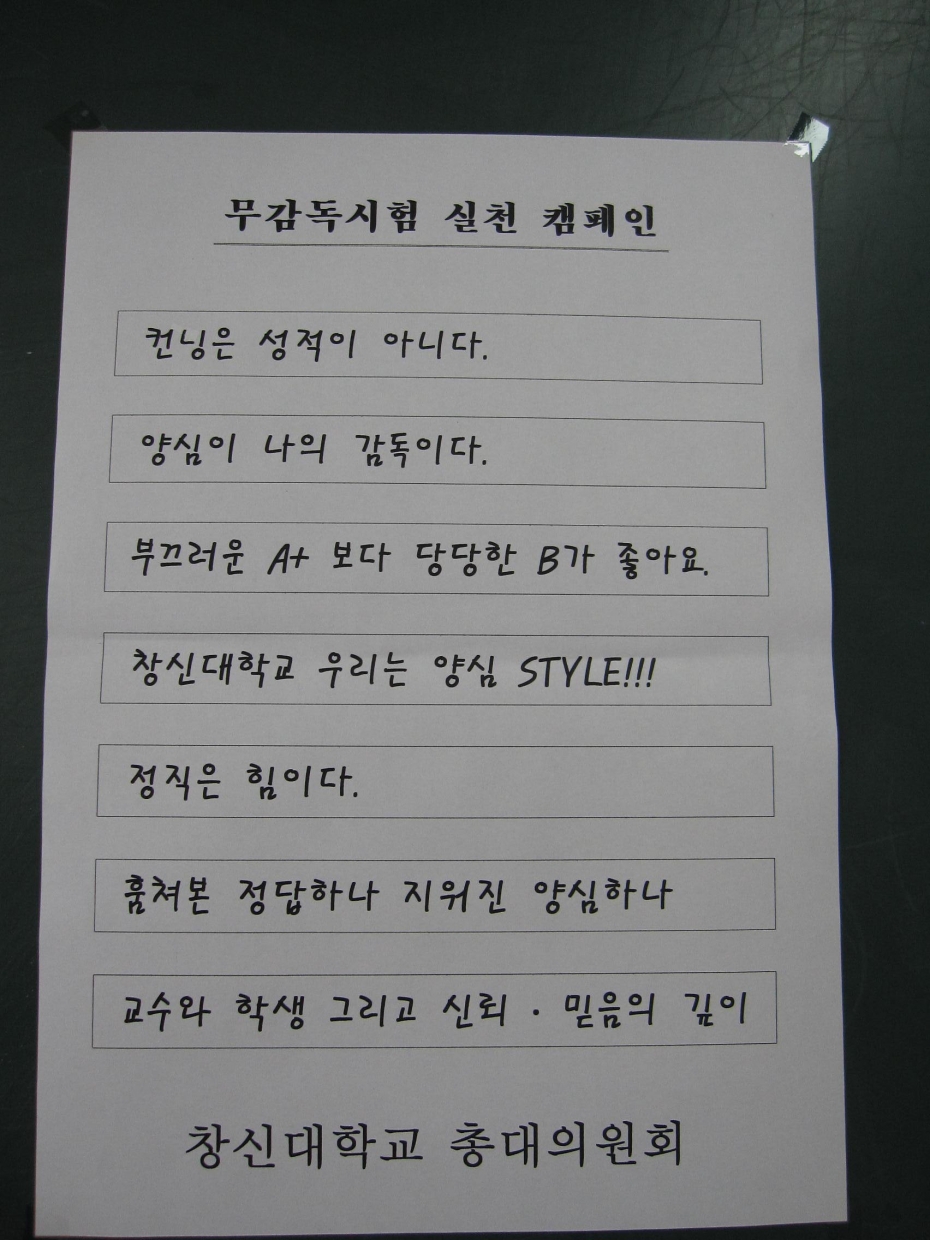 무감독시험 실천 캠페인
컨닝은 성적이 아니다.
양심이 나의 감독이다.
부끄러운 A+ 보다 당당한 B가 좋아요.
창신대학교 우리는 양심 STYLE!!!
정직은 힘이다.
훔쳐본 정답하나 지워진 양심하나
교수와 학생 그리고 신뢰 · 믿음의 깊이
창신대학교 총대의원회